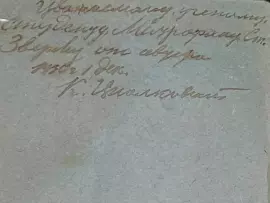 Уважаемому ученому,
студенту Митрофану Ст.
Звереву от автора
1930 г 1 дек.
К. Циолковский